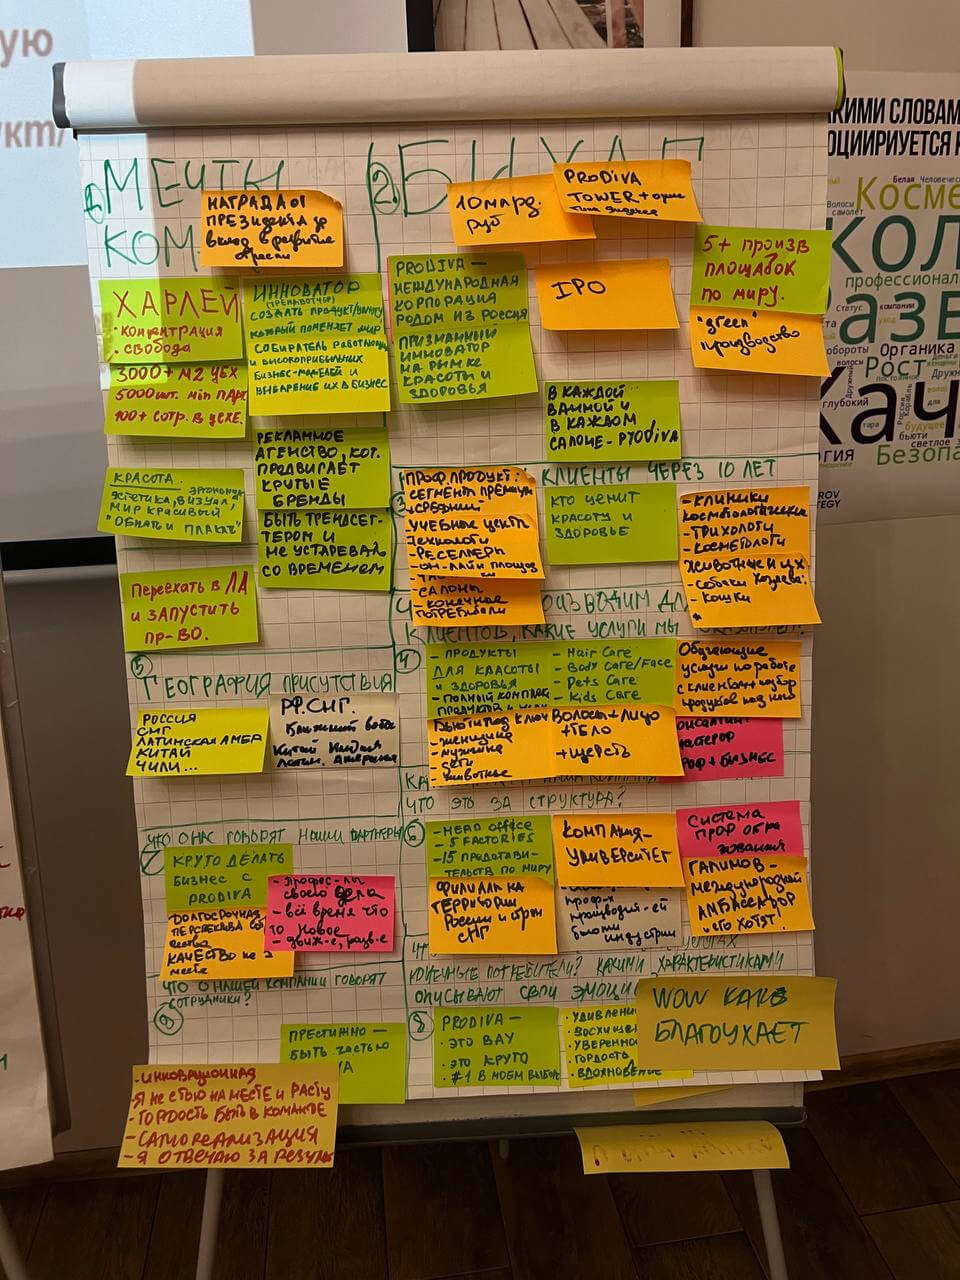 ую
укт/
КИМИ СЛОВАМ
ОЦИИРУЕТСЯ
Белая Человеческ
Волосы
самолёт
Косме
КОЛ
профессионал
Статус
компании
уход
Разв
обороты
Органика
волосы
Рост
постоянное
Дружный
деньги
женщины
Дружн
глубокий
тара
Россия
Корабль
Кач
вод
для
будущее
бьюти
светлое
огия
Безопа
ROV
TEGY
1 МЕЧТЫ
КОМ
НАГРАДА ОТ
ПРЕЗИДЕНТА за
вклад в развитие
отрасли
ХАРЛЕЙ
· КОНЦЕНТРАЦИЯ
· СВОБОДА
3000+ М2 ЦЕХ
5000 шт. min ПАРТ.
100+ сотр. в цехе.
ИННОВАТОР
(ТРЕНДВОТЧЕР)
СОЗДАТЬ ПРОДУКТ/ЛИНЕЙКУ
который поменяет мир
СОБИРАТЕЛЬ РАБОТАЮЩ
и высокоприбыльных
БИЗНЕС-МОДЕЛЕЙ И
ВНЕДРЕНИЕ ИХ В БИЗНЕС
РЕКЛАМНОЕ
АГЕНСТВО, КОТ.
ПРОДВИГАЕТ
КРУТЫЕ
БРЕНДЫ
КРАСОТА.
ЭСТЕТИКА, ВИЗУАЛ,
МИР КРАСИВЫЙ
"ОБНЯТЬ И ПЛАКАТЬ"
БЫТЬ ТРЕНДСЕТ-
ТЕРОМ И
НЕ УСТАРЕВАТЬ
СО ВРЕМЕНЕМ
Переехать в ЛА
и запустить
пр-во.
2 БИХАГ
10 млрд.
руб
PRODIVA
TOWER +
PRODIVA —
МЕЖДУНАРОДНАЯ
КОРПОРАЦИЯ
РОДОМ ИЗ РОССИЯ
ПРИЗНАННЫЙ
ИННОВАТОР
НА РЫНКЕ
КРАСОТЫ И
ЗДОРОВЬЯ
IPO
5+ произв
площадок
по миру.
"green"
производство
В КАЖДОЙ
ВАННОЙ И
В КАЖДОМ
САЛОНЕ - PRODIVA
3
КЛИЕНТЫ ЧЕРЕЗ 10 ЛЕТ
ПРОФ ПРОДУКТ:
СЕГМЕНТ ПРЕМИУМ
+СРЕДНИЙ
УЧЕБНЫЕ ЦЕНТР
Технологи
- РЕСЕЛЛЕРЫ
- ОН-ЛАЙН ПЛОЩАД
- САЛОНЫ
- КОНЕЧНЫЕ
ПОТРЕБИТЕЛИ
КТО ЦЕНИТ
КРАСОТУ И
ЗДОРОВЬЕ
- КЛИНИКИ
КОСМЕТОЛОГИЧЕСКИЕ
- ТРИХОЛОГИ
- КОСМЕТОЛОГИ
ЖИВОТНЫЕ И ИХ
- СОБАКИ Хозяева:
- КОШКИ
ОИЗВОДИМ ДЛ
КЛИЕНТОВ, КАКИЕ УСЛУГИ МЫ
4
- ПРОДУКТЫ
ДЛЯ КРАСОТЫ
И ЗДОРОВЬЯ
- ПОЛНЫЙ КОМПЛЕКС
- Hair Care
- Body Care/Face
- Pets Care
- Kids Care
Обучающие
услуги по работе
с клиентом + подбор
продуктов под них
БЬЮТИ ПОД КЛЮЧ
- женщины
- мужчины
- дети
- животные
ВОЛОСЫ + ЛИЦО
+ ТЕЛО
+ ШЕРСТЬ
КОНСАЛТИНГ
+ БИЗНЕС
5
ГЕОГРАФИЯ ПРИСУТСТВИЯ
РОССИЯ
СНГ
ЛАТИНСКАЯ АМЕР
КИТАЙ
ЧИЛИ...
РФ. СНГ.
Ближний восток
Китай Индия
Латин. Америка
ЧТО ЭТО ЗА СТРУКТУРА?
6
- HEAD office
- 5 FACTORIES
- 15 ПРЕДСТАВИ-
ТЕЛЬСТВ ПО МИРУ
ФИЛИАЛЫ НА
ТЕРРИТОРИИ
России и стран
СНГ
КОМПАНИЯ-
УНИВЕРСИТЕТ
бьюти
индустрии
СИСТЕМА
ПРОФ ОБРА
ЗОВАНИЯ
ГАЛИМОВ -
МЕЖДУНАРОДНЫЙ
АМБАССАДОР
ЧЕГО ХОТЯТ!
ЧТО О НАС ГОВОРЯТ НАШИ ПАРТНЕРЫ
7
КРУТО ДЕЛАТЬ
БИЗНЕС С
PRODIVA
- ПРОФЕС-ЛЫ
своего дела
- ВСЁ ВРЕМЯ ЧТО
ТО НОВОЕ
- движ-е, разв-е
ДОЛГОСРОЧНАЯ
ПЕРСПЕКТИВА
КАЧЕСТВО НА
месте
ЧТО О НАШЕЙ КОМПАНИИ ГОВОРЯТ
СОТРУДНИКИ?
9
ПРЕСТИЖНО —
БЫТЬ ЧАСТЬЮ
- ИННОВАЦИОННАЯ
- Я НЕ СТОЮ НА МЕСТЕ И РАСТУ
- ГОРДОСТЬ БЫТЬ В КОМАНДЕ
- САМОРЕАЛИЗАЦИЯ
- Я ОТВЕЧАЮ ЗА РЕЗУЛЬ
УСЛУГАХ
КОНЕЧНЫЕ ПОТРЕБИТЕЛИ? КАКИМИ ХАРАКТЕРИСТИКАМИ
ОПИСЫВАЮТ СВОИ ЭМОЦИ
8
PRODIVA -
· ЭТО ВАУ
· ЭТО КРУТО
· #1 В МОЕМ ВЫБОРЕ
· УДИВЛЕНИ
· ВОСХИЩЕН
· УВЕРЕННО
· ГОРДОСТЬ
· ВДОХНОВЕНИЕ
WOW КАК
БЛАГОУХАЕТ